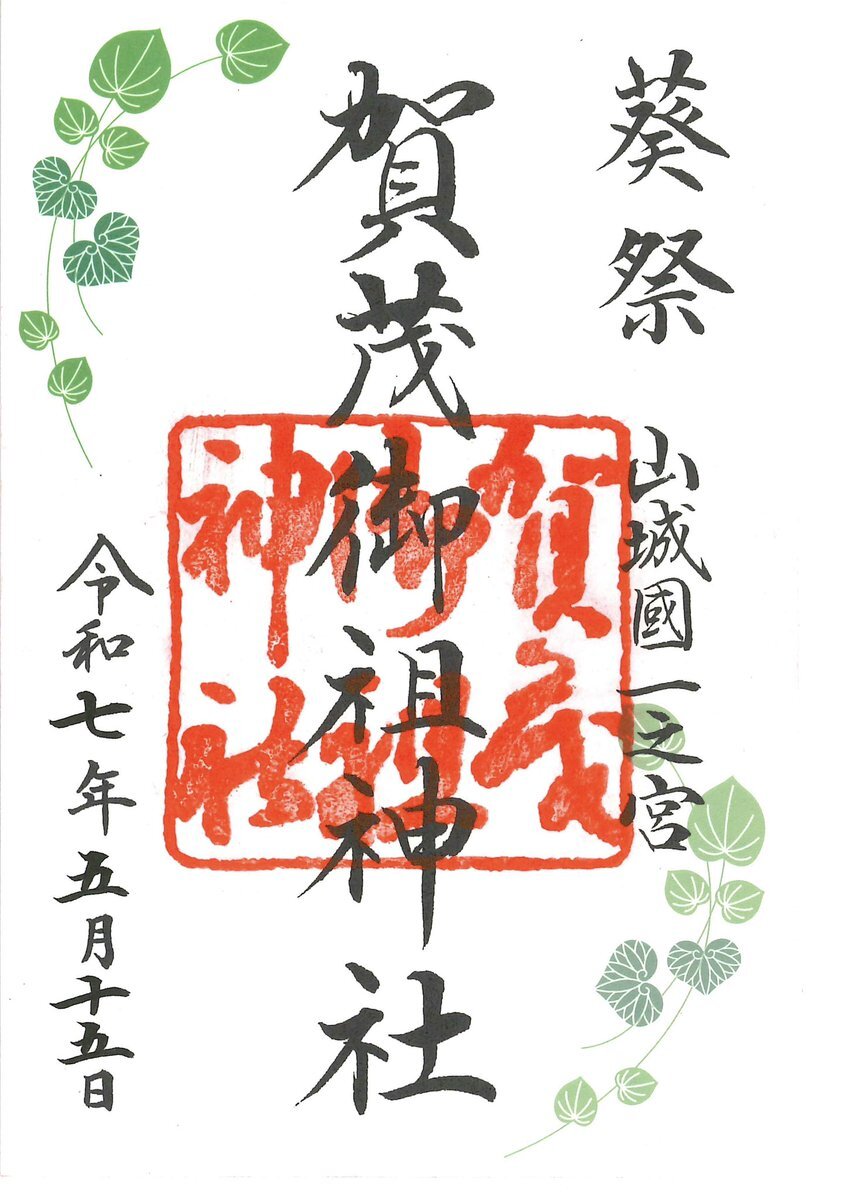 葵祭
山城國一之宮
賀茂御祖神社
賀茂
御祖
神社
令和七年五月十五日